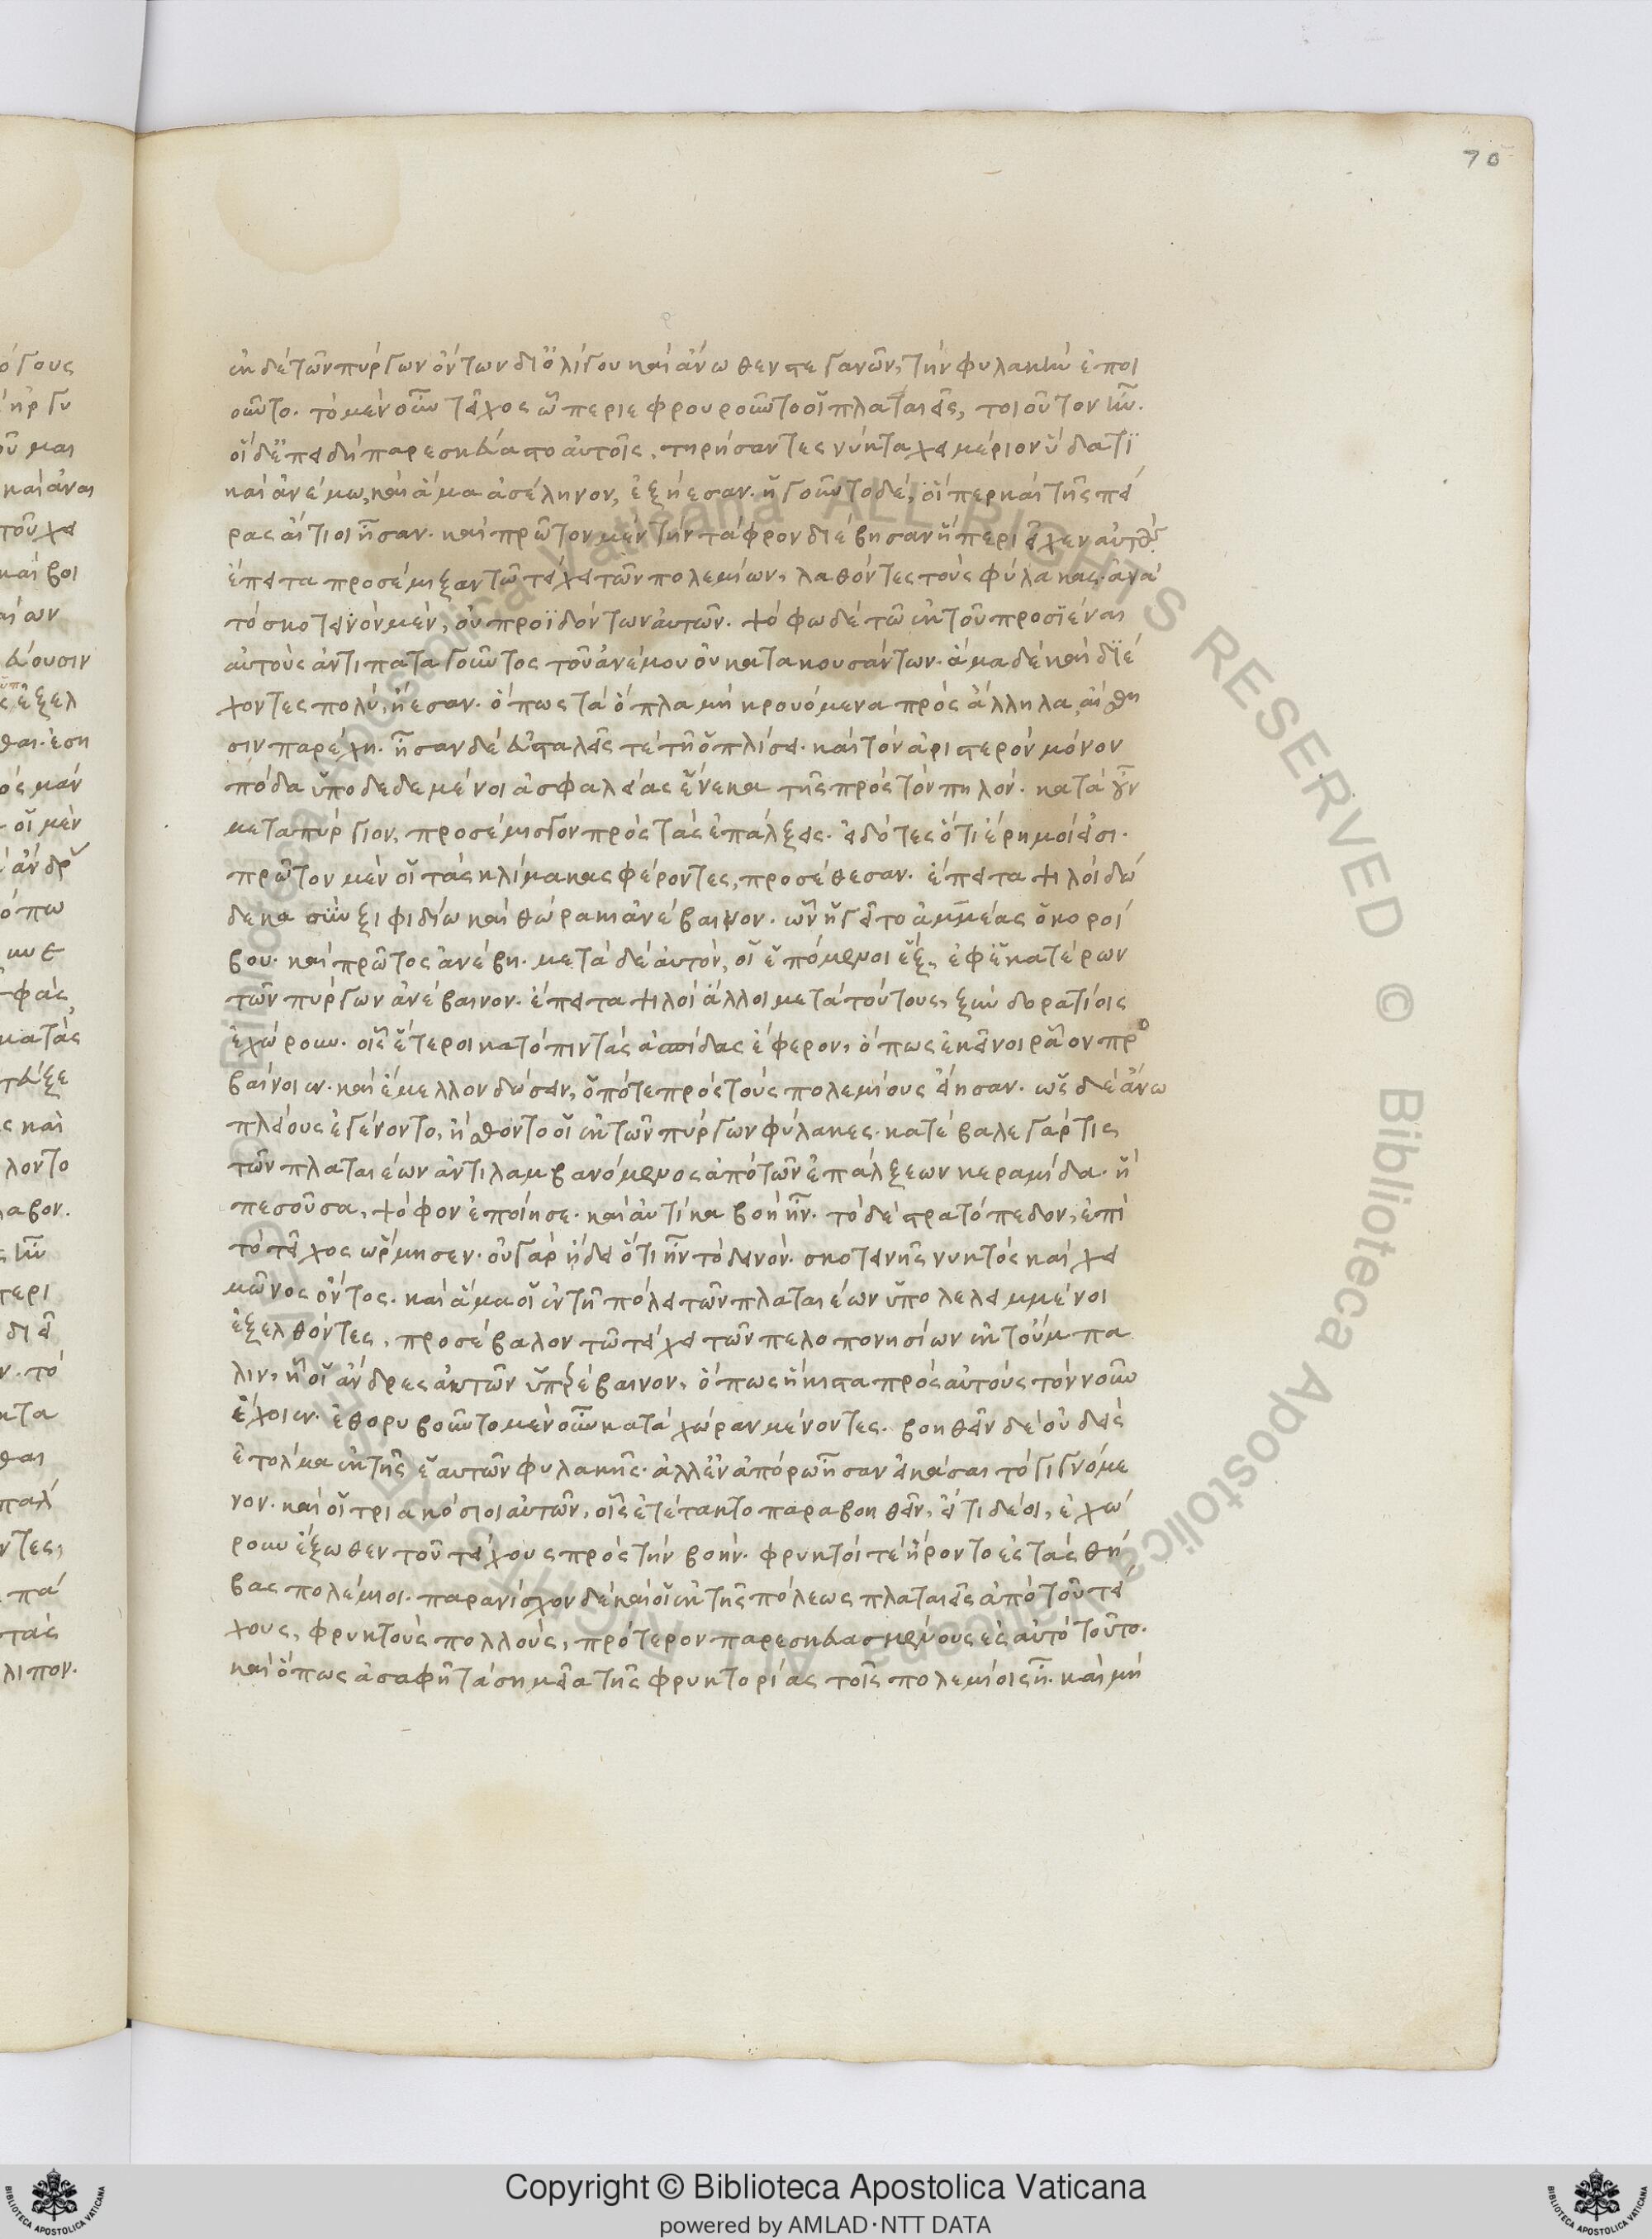 70
ἐκ δὲ τῶν πύργων ὄντων δι' ὀλίγου καὶ ἄνωθεν στεγανῶν, τὴν φυλακὴν ἐποι
οῦντο. τὸ μὲν οὖν τεῖχος ὧ περιεφρουροῦντο οἱ πλαταιεῖς, τοιοῦτον ἦν.
οἱ δ' ἐπειδὴ παρεσκεύαστο αὐτοῖς, τηρήσαντες νύκτα χειμέριον ὕδατι
καὶ ἀνέμω, καὶ ἅμα ἀσέληνον, ἐξήεσαν. ἡγοῦντο δὲ, οἵπερ καὶ τῆς πεί
ρας αἴτιοι ἦσαν. καὶ πρῶτον μὲν τὴν τάφρον διέβησαν ἣ περιεῖχεν αὐτούς.
ἔπειτα προσέμιξαν τῶ τείχει τῶν πολεμίων, λαθόντες τοὺς φύλακας. ἀνὰ
τὸ σκοτεινὸν μὲν, οὐ προϊδόντων αὐτῶν. ψόφω δὲ τῶ ἐκ τοῦ προσιέναι
αὐτοὺς ἀντιπαταγοῦντος τοῦ ἀνέμου οὐ κατακουσάντων. ἅμα δὲ καὶ διέ
χοντες πολὺ, ἤεσαν. ὅπως τὰ ὅπλα μὴ κρουόμενα πρὸς ἄλληλα, αἴσθη
σιν παρέχη. ἦσαν δὲ εὐσταλεῖς τε τῆ ὁπλίσει. καὶ τὸν ἀριστερὸν μόνον
πόδα ὑποδεδεμένοι ἀσφαλείας ἕνεκα τῆς πρὸς τὸν πηλόν. κατὰ οὖν
μεταπύργιον, προσέμισγον πρὸς τὰς ἐπάλξεις. εἰδότες ὅτι ἐρημοί εἰσι.
πρῶτον μὲν οἱ τὰς κλίμακας φέροντες, προσέθεσαν. ἔπειτα ψιλοὶ δώ
δεκα σὺν ξιφιδίω καὶ θώρακι ἀνέβαινον. ὧν ἡγεῖτο ἀμμέας ὁ κοροί
βου. καὶ πρῶτος ἀνέβη. μετὰ δὲ αὐτὸν, οἱ ἑπόμενοι ἓξ, ἐφ' ἑκατέρων
τῶν πύργων ἀνέβαινον. ἔπειτα ψιλοὶ ἄλλοι μετὰ τούτους, ξὺν δορατίοις
ἐχώρουν. οἷς ἕτεροι κατόπιν τὰς ἀσπίδας ἔφερον, ὅπως ἐκεῖνοι ρᾶον προ
βαίνοιεν. καὶ ἔμελλον δώσειν, ὁπότε πρὸς τοὺς πολεμίους εἴησαν. ὡς δὲ ἄνω
πλείους ἐγένοντο, ἤσθοντο οἱ ἐκ τῶν πύργων φύλακες. κατέβαλε γάρ τις
τῶν πλαταιέων ἀντιλαμβανόμενος ἀπὸ τῶν ἐπάλξεων κεραμίδα. ἣ
πεσοῦσα, ψόφον ἐποίησε. καὶ αὐτίκα βοὴ ἦν. τὸ δὲ στρατόπεδον, ἐπὶ
τὸ τεῖχος ὥρμησεν. οὐ γὰρ ἤδει ὅτι ἦν τὸ δεινόν. σκοτεινῆς νυκτὸς καὶ χει
μῶνος ὄντος. καὶ ἅμα οἱ ἐν τῆ πόλει τῶν πλαταιέων ὑπολελειμμένοι
ἐξελθόντες, προσέβαλον τῶ τείχει τῶν πελοπονησίων ἐκ τοὔμπα
λιν, ἢ οἱ ἄνδρες αὐτῶν ὑπερέβαινον, ὅπως ἥκιστα πρὸς αὐτοὺς τὸν νοῦν
ἔχοιεν. ἐθορυβοῦντο μὲν οὖν κατὰ χώραν μένοντες. βοηθεῖν δὲ οὐδεὶς
ἐτόλμα ἐκ τῆς ἑαυτῶν φυλακῆς. ἀλλ' ἐν ἀπόρω ἦσαν εἰκάσαι τὸ γιγνόμε
νον. καὶ οἱ τριακόσιοι αὐτῶν, οἷς ἐτέτακτο παραβοηθεῖν, εἴ τι δέοι, ἐχώ
ρουν ἔξωθεν τοῦ τείχους πρὸς τὴν βοήν. φρυκτοί τε ἤροντο ἐς τὰς θή
βας πολέμιοι. παρανίσχον δὲ καὶ οἱ ἐκ τῆς πόλεως πλαταιεῖς ἀπὸ τοῦ τεί
χους, φρυκτοὺς πολλοὺς, πρότερον παρεσκευασμένους ἐς αὐτὸ τοῦτο.
καὶ ὅπως ἀσαφῆ τὰ σημεῖα τῆς φρυκτορίας τοῖς πολεμίοις ἦ. καὶ μὴ
Copyright © Biblioteca Apostolica Vaticana
powered by AMLAD·NTT DATA